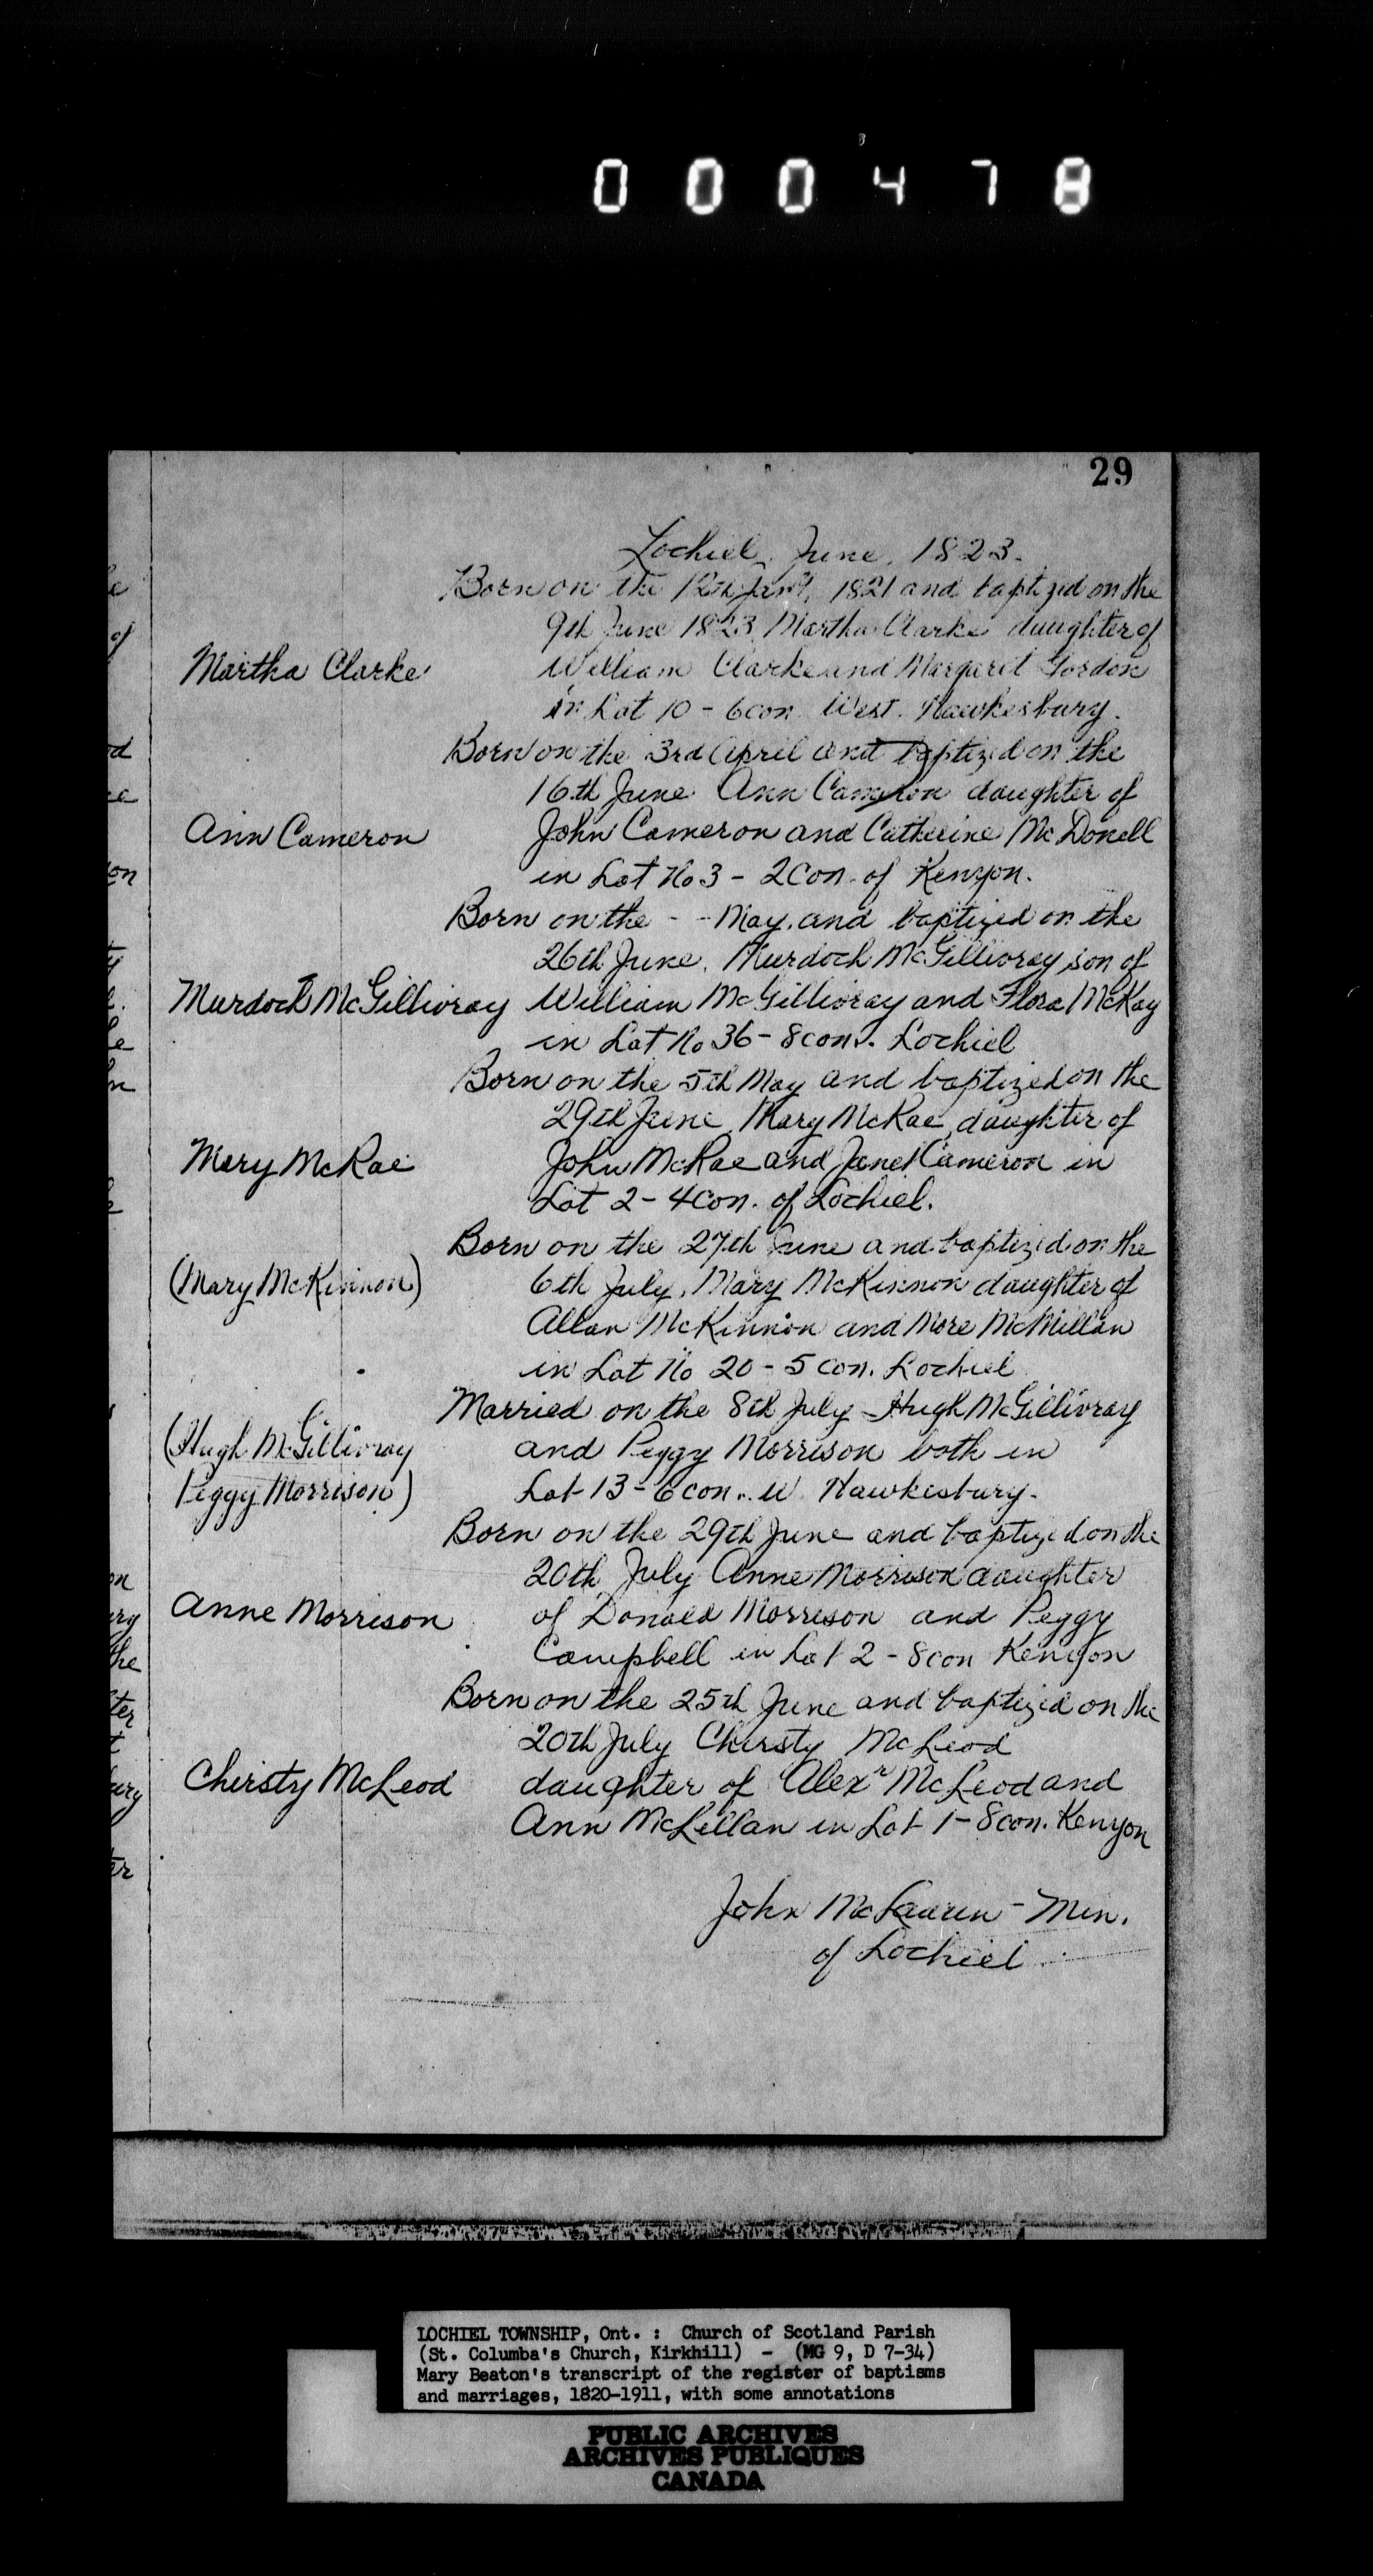 000478
29
Lochiel, June, 1823.
Born on the 12th Jany, 1821 and baptized on the
9th June 1823, Martha Clarke daughter of
Martha Clarke William Clarke and Margaret Gordon
in Lot 10 - 6con. West. Hawkesbury.
Born on the 3rd April and baptized on the
16th June Ann Cameron daughter of
Ann Cameron John Cameron and Catherine McDonell
in Lot No 3 - 2Con. of Kenyon.
Born on the - - May, and baptized on the
26th June, Murdoch McGillivray son of
Murdoch McGillivray William McGillivray and Flora McKay
in Lot No 36 - 8con. Lochiel
Born on the 5th May and baptized on the
29th June, Mary McRae, daughter of
Mary McRae John McRae and Janet Cameron in
Lot 2 - 4Con. of Lochiel.
Born on the 27th June and baptized on the
(Mary McKinnon) 6th July, Mary McKinnon daughter of
Allan McKinnon and More McMillan
in Lot No 20 - 5 Con. Lochiel
Married on the 8th July - Hugh McGillivray
(Hugh McGillivray and Peggy Morrison both in
Peggy Morrison) Lot 13 - 6 con. W. Hawkesbury.
Born on the 29th June and baptized on the
20th July Anne Morrison daughter
Anne Morrison of Donald Morrison and Peggy
Campbell in Lot 2 - 8con Kenyon
Born on the 25th June and baptized on the
20th July Chirsty McLeod
Chirsty McLeod daughter of Alexr McLeod and
Ann McLellan in Lot 1 - 8con. Kenyon
John McLauren - Min.
of Lochiel
LOCHIEL TOWNSHIP, Ont. : Church of Scotland Parish
(St. Columba's Church, Kirkhill) - (MG 9, D 7-34)
Mary Beaton's transcript of the register of baptisms
and marriages, 1820-1911, with some annotations
PUBLIC ARCHIVES
ARCHIVES PUBLIQUES
CANADA